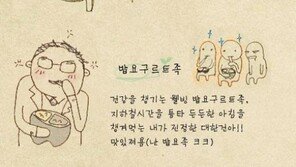 밥요구르트족
건강을 챙기는 웰빙 밥요구르트족.
지하철시간을 통타 든든한 아침을
챙겨먹는 내가 진정한 대한건아!!
맛있져용(난 밥요족 크크)